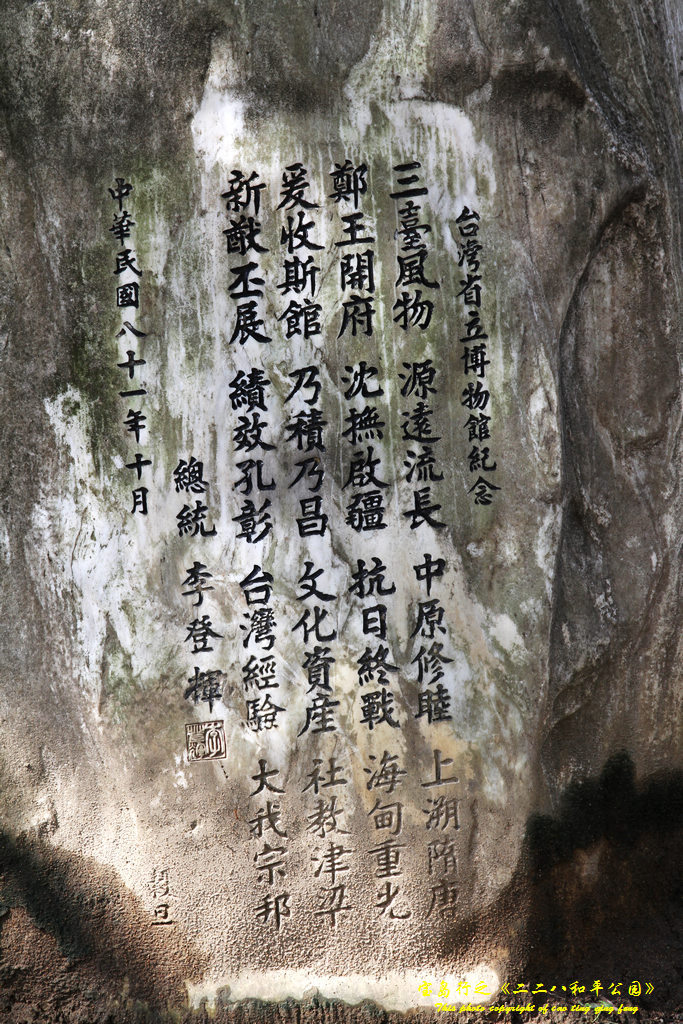 台灣省立博物館紀念
三臺風物 源遠流長 中原修睦 上溯隋唐
鄭王開府 沈撫啟疆 抗日終戰 海甸重光
爰收斯館 乃積乃昌 文化資產 社教津梁
新猷丕展 績效孔彰 台灣經驗 大我宗邦
總統 李登輝
中華民國八十一年十月
穀旦
宝岛行之《二二八和平公园》
This photo copyright of